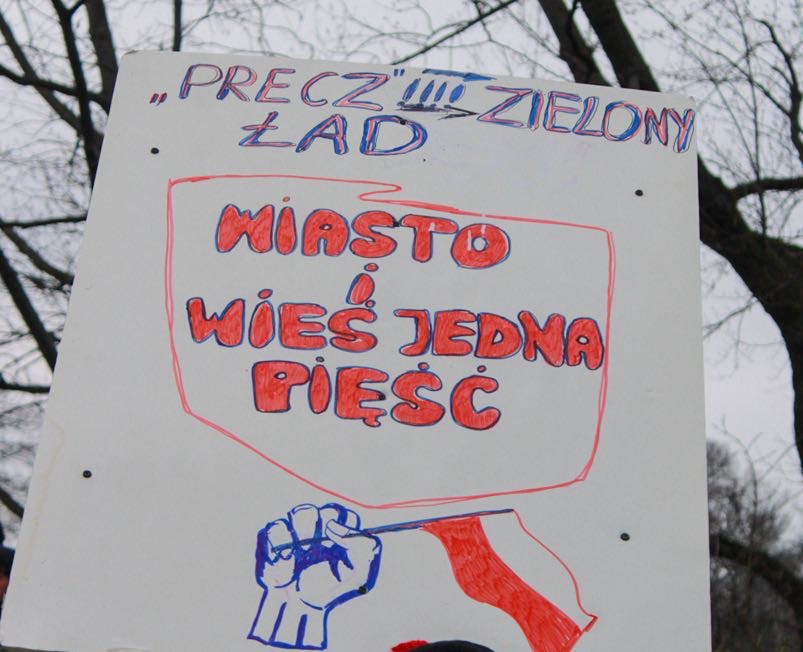 „PRECZ" ZIELONY
ŁAD
WIASTO
i
WIEŚ JEDNA
PIĘŚĆ